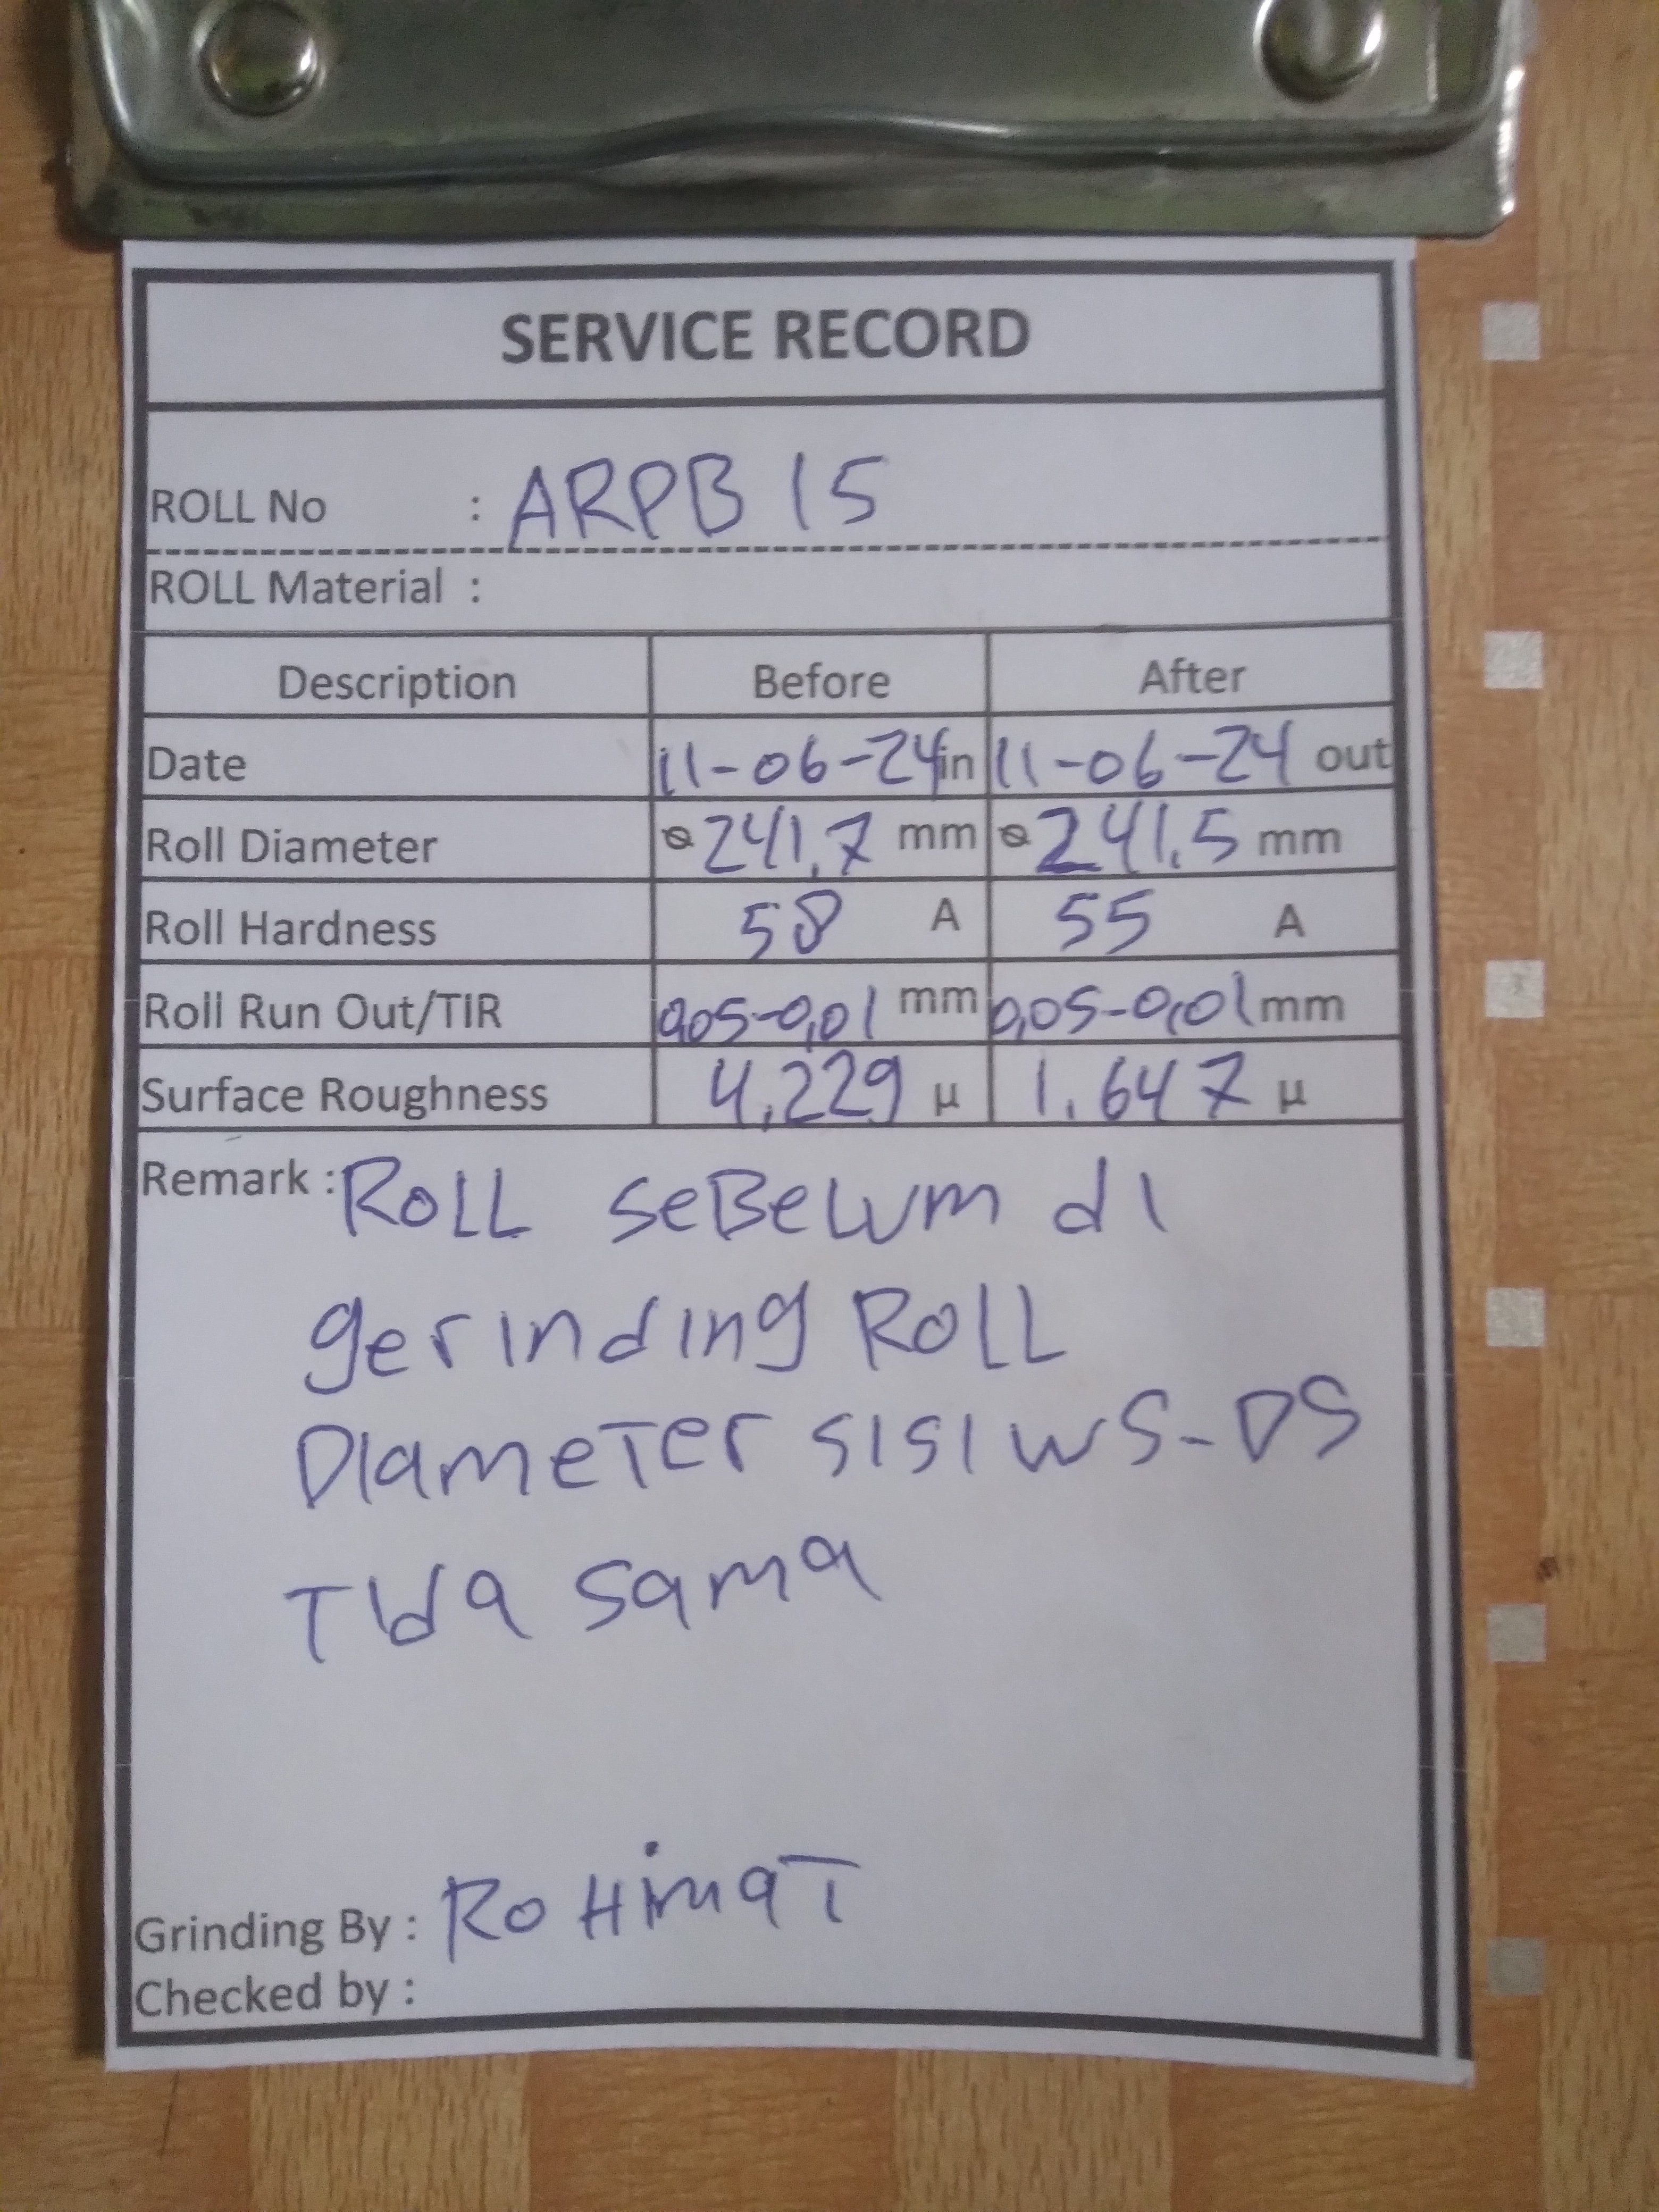 SERVICE RECORD
ROLL No : ARPB 15
ROLL Material :
Description Before After
Date 11-06-24 in 11-06-24 out
Roll Diameter ⌀ 241,7 mm ⌀ 241,5 mm
Roll Hardness 58 A 55 A
Roll Run Out/TIR 0,05-0,01 mm 0,05-0,01 mm
Surface Roughness 4,229 µ 1.647 µ
Remark : ROLL SeBeLum di
gerinding ROLL
DiameTer sisi WS-DS
Tida sama
Grinding By : RoHimaT
Checked by :